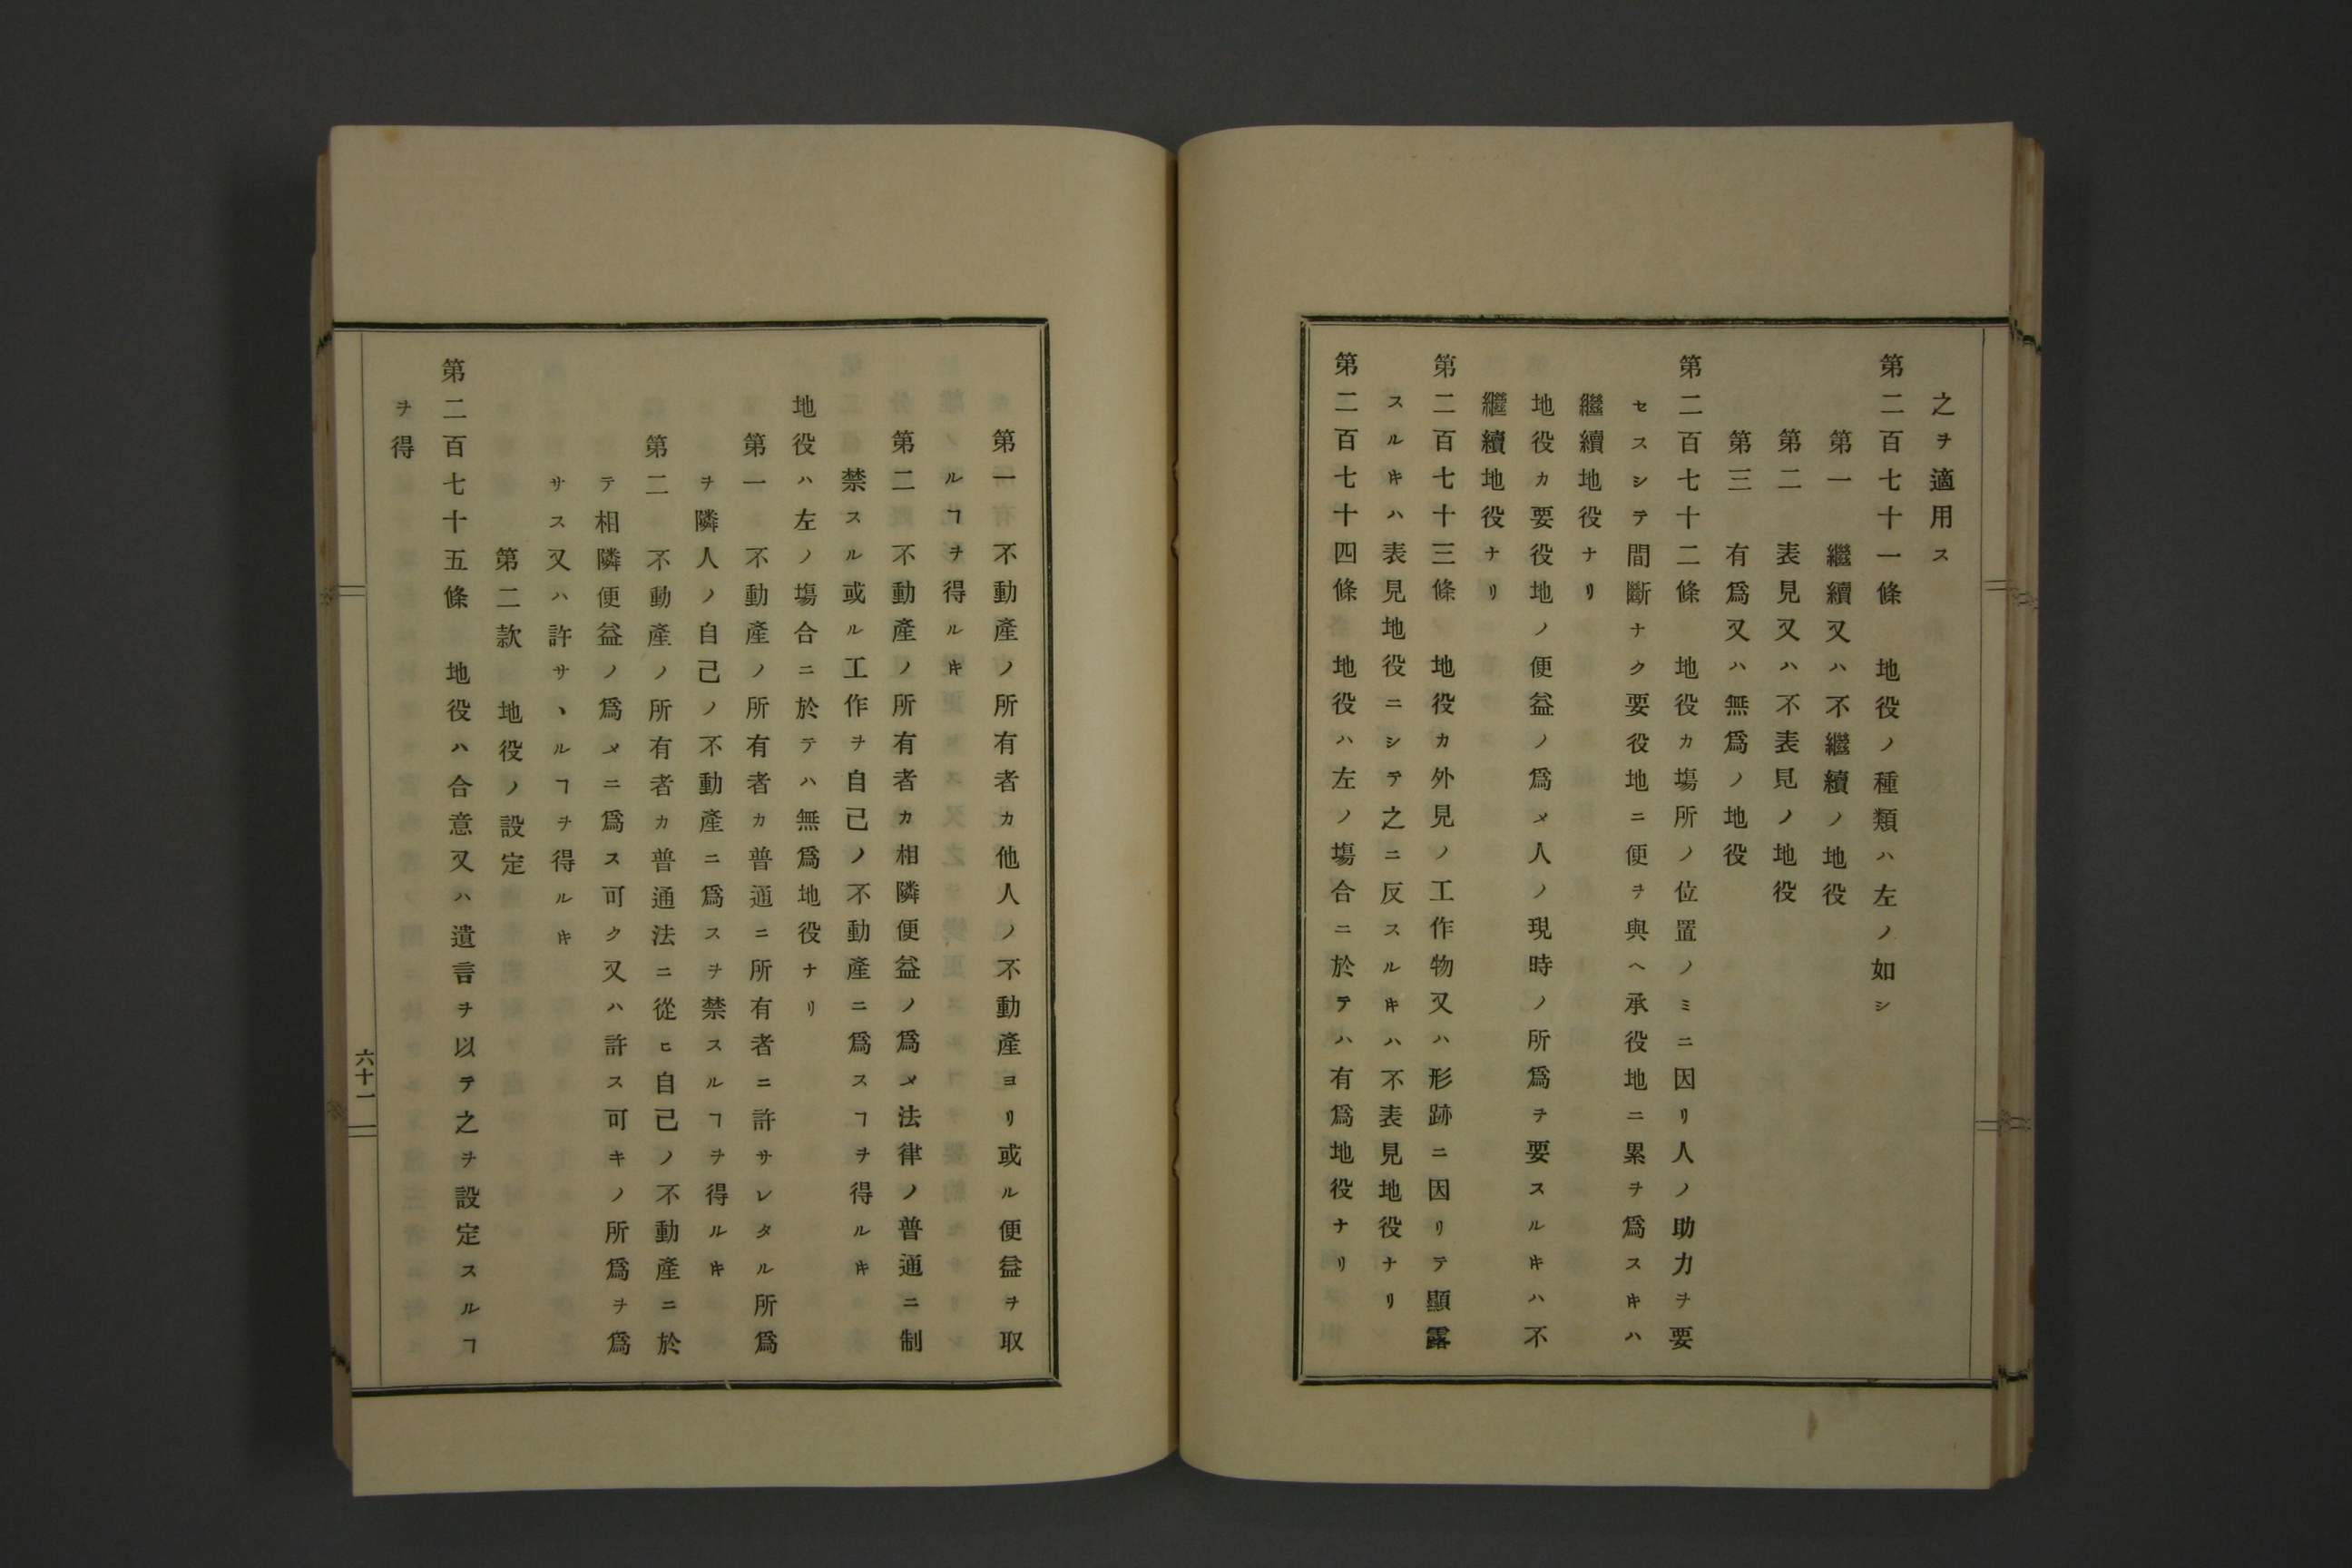 之ヲ適用ス
第二百七十一條 地役ノ種類ハ左ノ如シ
第一 繼續又ハ不繼續ノ地役
第二 表見又ハ不表見ノ地役
第三 有爲又ハ無爲ノ地役
第二百七十二條 地役カ塲所ノ位置ノミニ因リ人ノ助力ヲ要
セスシテ間斷ナク要役地ニ便ヲ與ヘ承役地ニ累ヲ爲スキハ
繼續地役ナリ
地役カ要役地ノ便益ノ爲メ人ノ現時ノ所爲ヲ要スルキハ不
繼續地役ナリ
第二百七十三條 地役カ外見ノ工作物又ハ形跡ニ因リテ顯露
スルキハ表見地役ニシテ之ニ反スルキハ不表見地役ナリ
第二百七十四條 地役ハ左ノ塲合ニ於テハ有爲地役ナリ
第一 不動產ノ所有者カ他人ノ不動產ヨリ或ル便益ヲ取
ルヿヲ得ルキ
第二 不動產ノ所有者カ相隣便益ノ爲メ法律ノ普通ニ制
禁スル或ル工作ヲ自己ノ不動產ニ爲スヿヲ得ルキ
地役ハ左ノ塲合ニ於テハ無爲地役ナリ
第一 不動產ノ所有者カ普通ニ所有者ニ許サレタル所爲
ヲ隣人ノ自己ノ不動產ニ爲スヲ禁スルヿヲ得ルキ
第二 不動產ノ所有者カ普通法ニ從ヒ自己ノ不動產ニ於
テ相隣便益ノ爲メニ爲ス可ク又ハ許ス可キノ所爲ヲ爲
サス又ハ許サヽルヿヲ得ルキ
第二款 地役ノ設定
第二百七十五條 地役ハ合意又ハ遺言ヲ以テ之ヲ設定スルヿ
ヲ得
六十一